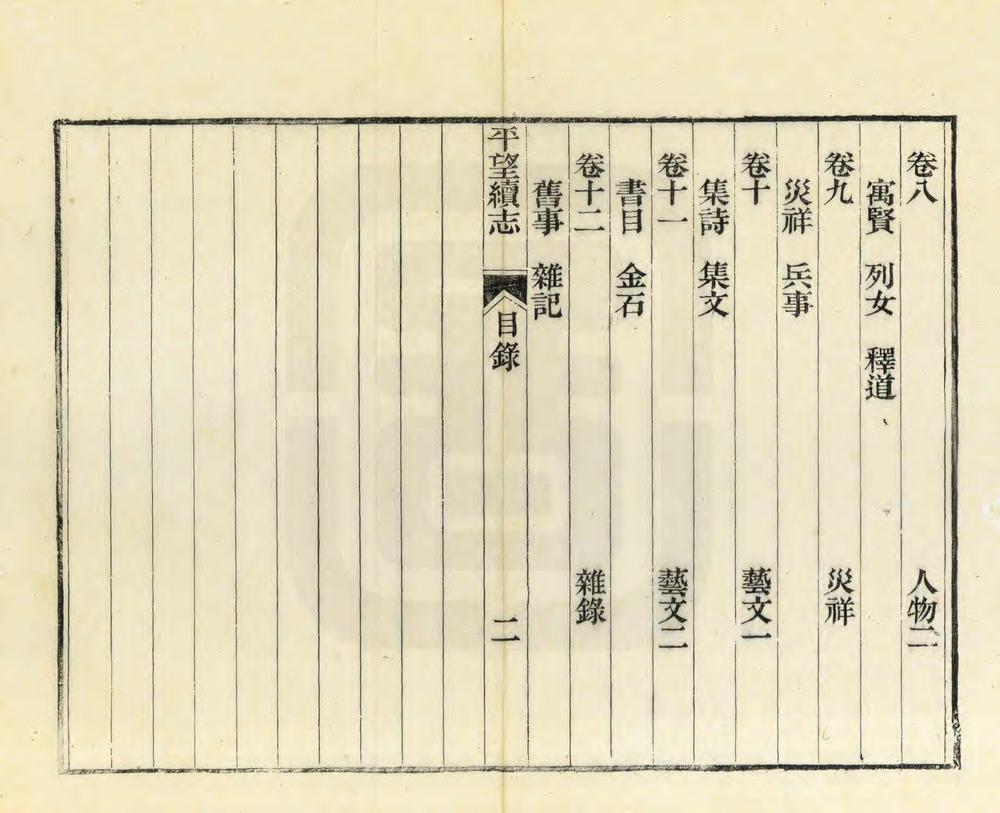 卷八　人物二
寓賢　列女　釋道
卷九　災祥
災祥　兵事
卷十　藝文一
集詩　集文
卷十一　藝文二
書目　金石
卷十二　雜錄
舊事　雜記
平望續志　目錄　二